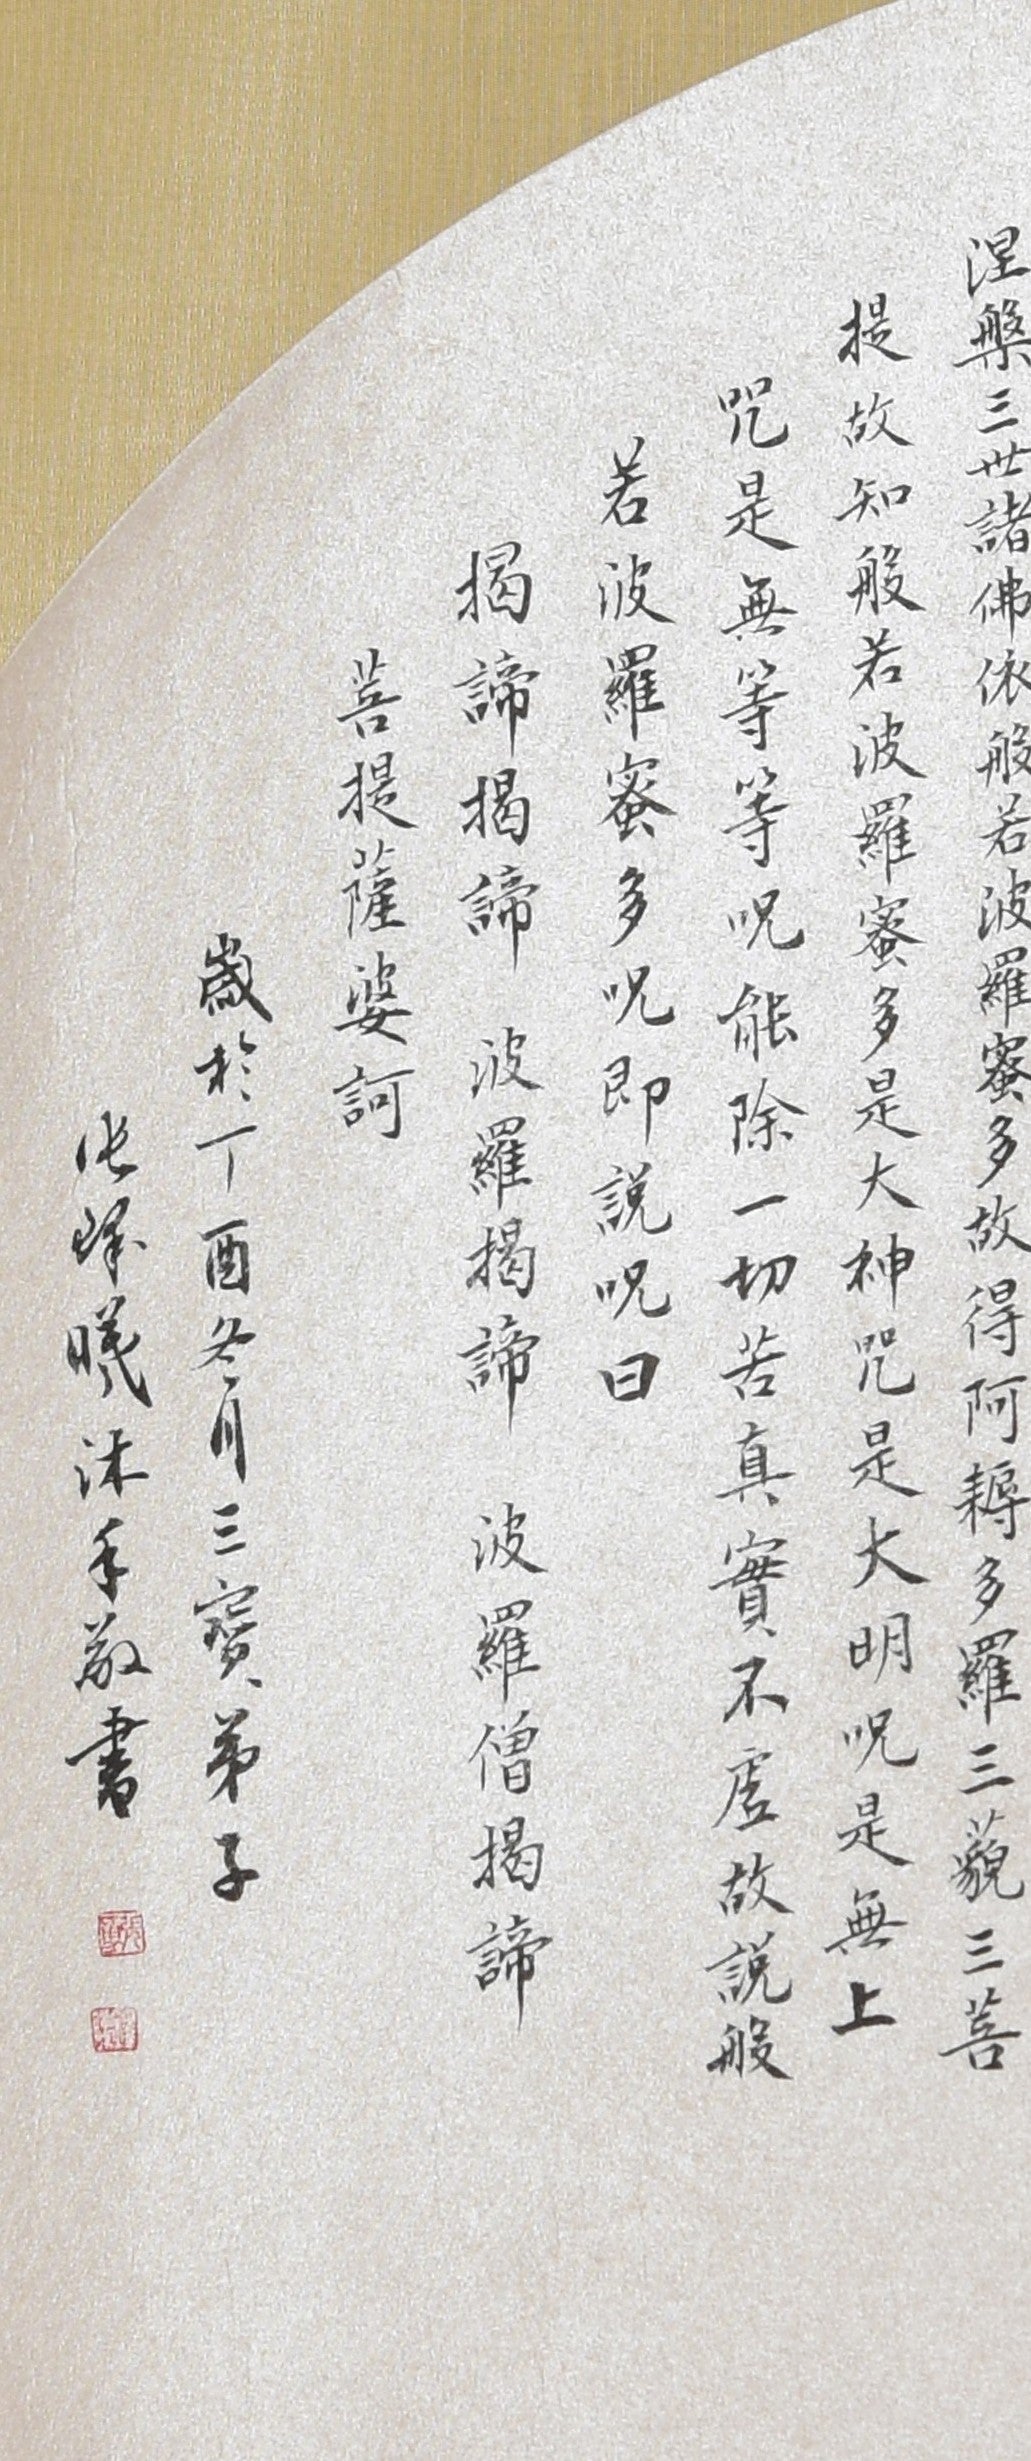 涅槃三世諸佛依般若波羅蜜多故得阿耨多羅三藐三菩
提故知般若波羅蜜多是大神咒是大明呪是無上
咒是無等等呪能除一切苦真實不虛故説般
若波羅蜜多呪即説呪曰
揭諦揭諦 波羅揭諦 波羅僧揭諦
菩提薩婆訶
歲於丁酉冬月三寶弟子
張曦沐手敬書